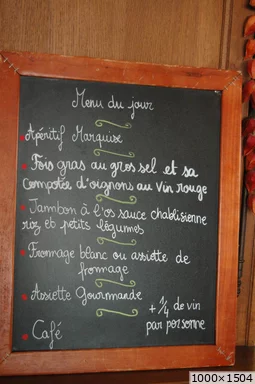 Menu du jour
Apéritif Marquise
Fois gras au gros sel et sa
Compotée d'oignons au vin rouge
Jambon à l'os sauce chablisienne
riz et petits légumes
Fromage blanc ou assiette de
fromage
Assiette Gourmande
Café
+ 1/4 de vin
par personne
1000×1504